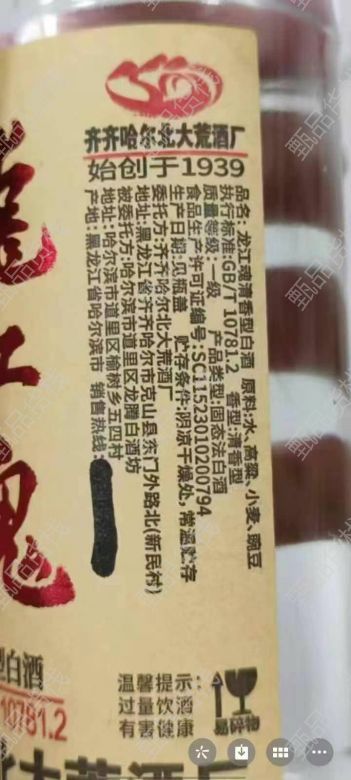 齐齐哈尔北大荒酒厂
始创于1939
品名:龙江魂清香型白酒 原料:水、高粱、小麦、豌豆
执行标准:GB/T 10781.2 香型:清香型
质量等级:一级 产品类型:固态法白酒
食品生产许可证编号:SC11523010200794
生产日期:见瓶盖 贮存条件:阴凉干燥处,常温贮存
委托方:齐齐哈尔北大荒酒厂
地址:黑龙江省齐齐哈尔市克山县东门外路北(新民村)
被委托方:哈尔滨市道里区龙腾白酒坊
地址:哈尔滨市道里区榆树乡五四村
产地:黑龙江省哈尔滨市 销售热线:
温馨提示:
过量饮酒
有害健康
易碎物
江魂
型白酒
10781.2
北大荒酒
甄品货栈